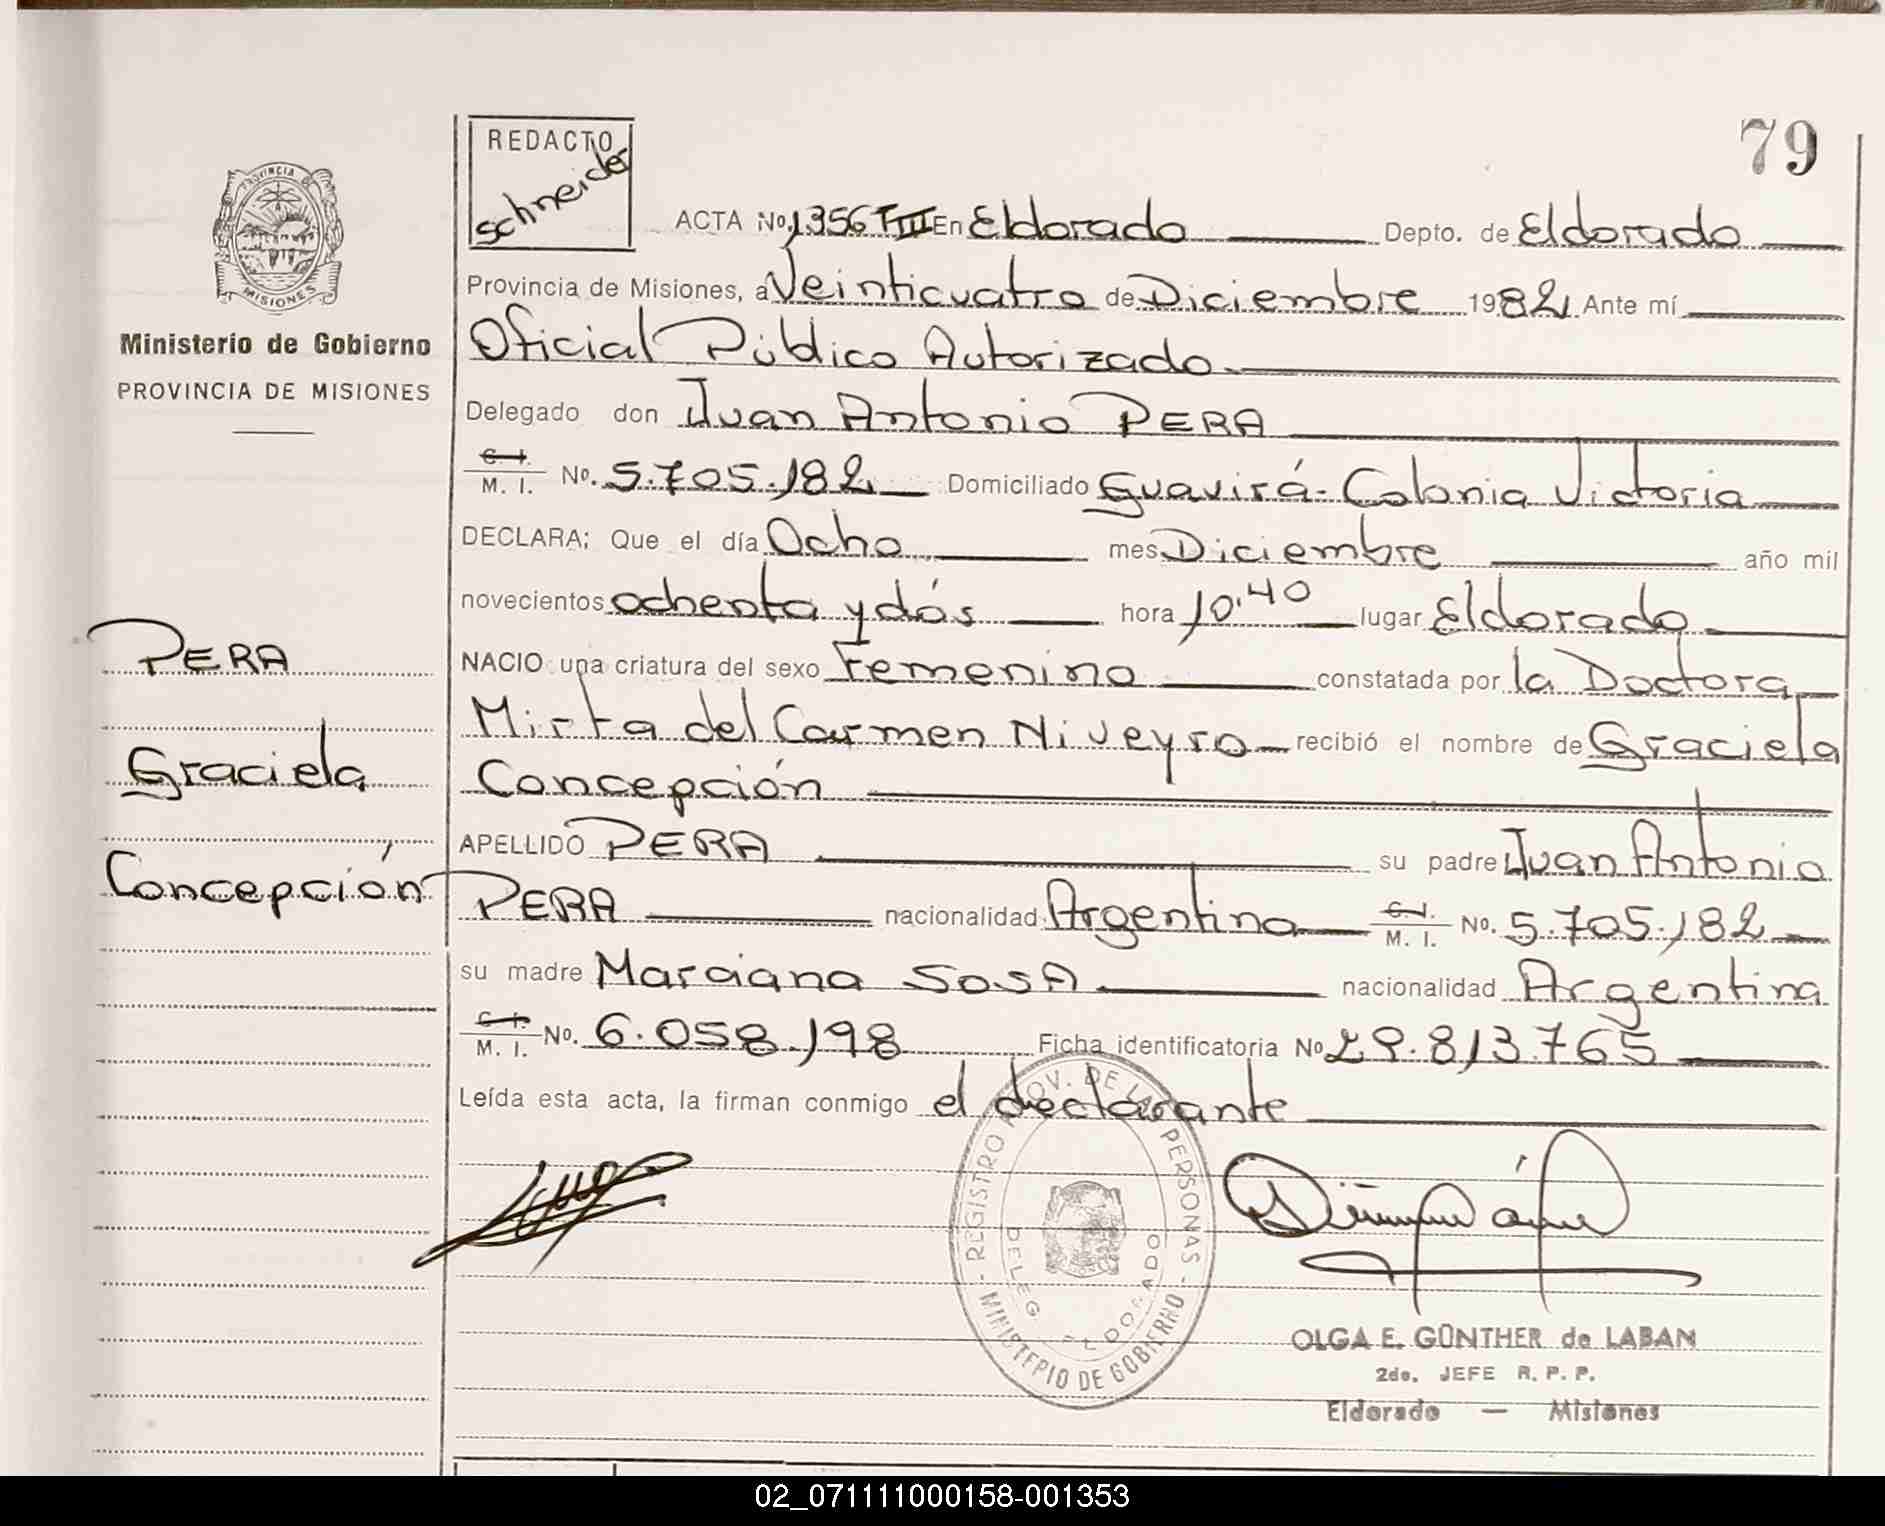 79
REDACTO
Schneider
PROVINCIA
MISIONES
Ministerio de Gobierno
PROVINCIA DE MISIONES
ACTA No. 1356 TIII En Eldorado Depto. de Eldorado
Provincia de Misiones, a Veinticuatro de Diciembre 1982 Ante mí
Oficial Público Autorizado
Delegado don Juan Antonio PERA
C. I. M. I. No. 5.705.182 Domiciliado Guavirá - Colonia Victoria
DECLARA; Que el día Ocho mes Diciembre año mil
novecientos ochenta y dós hora 10.40 lugar Eldorado
NACIO una criatura del sexo Femenino constatada por la Doctora
Mirta del Carmen Niveyro recibió el nombre de Graciela
Concepción
APELLIDO PERA su padre Juan Antonio
PERA nacionalidad Argentina C. I. M. I. No. 5.705.182
su madre Marciana SOSA nacionalidad Argentina
C. I. M. I. No. 6.058.198 Ficha identificatoria No 29.813.765
Leída esta acta, la firman conmigo el declarante
PERA
Graciela
Concepción
REGISTRO PROV. DE LAS PERSONAS
DELEG. ELDORADO
MINISTERIO DE GOBIERNO
OLGA E. GÜNTHER de LABAN
2do. JEFE R. P. P.
Eldorado — Misiones
02_071111000158-001353